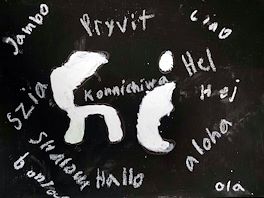 Jambo
Pryvit
Ciao
hi
Konnichiwa
Hel
Hej
Szia
Shalom
Hallo
aloha
ola